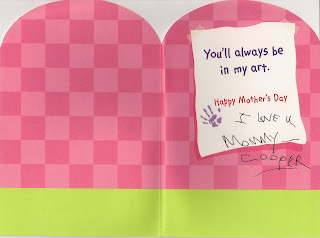 You'll always be
in my art.
Happy Mother's Day
I LOVE U
MOMMY
COOPER